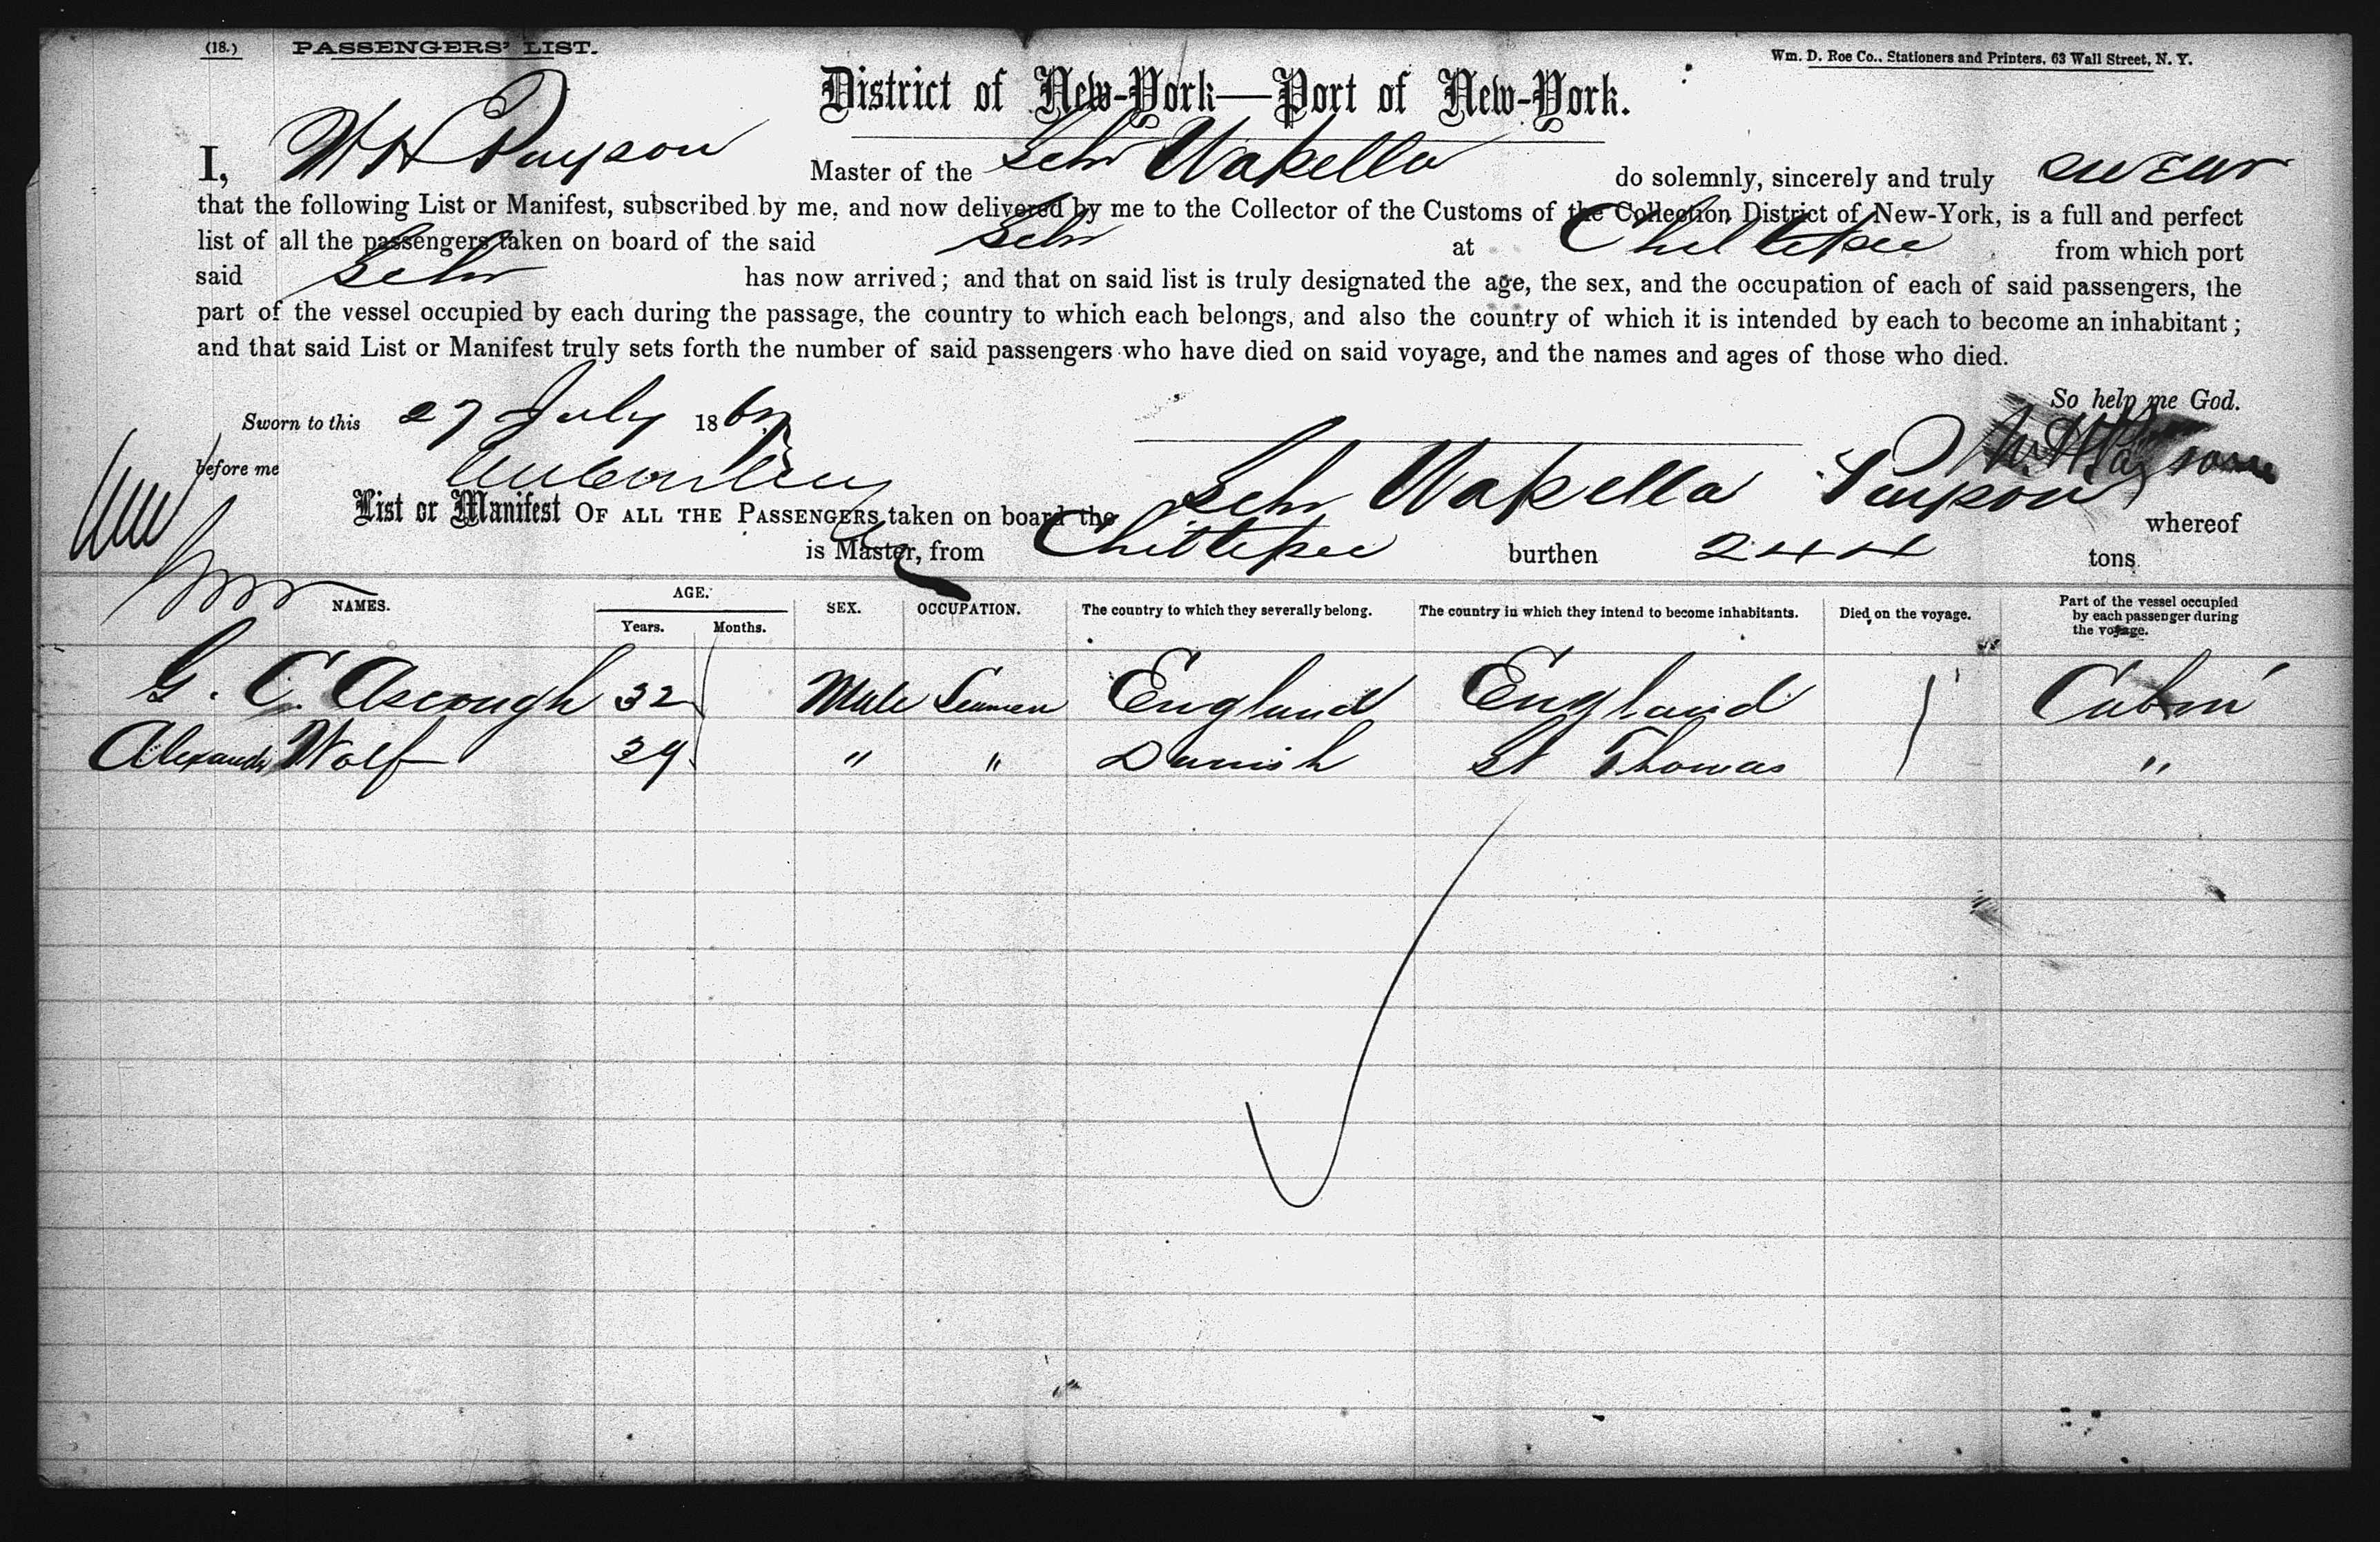 (18.) PASSENGERS' LIST.
Wm. D. Roe Co., Stationers and Printers, 63 Wall Street, N. Y.
District of New-York—Port of New-York.
I, W H Payson Master of the Schr Wapella do solemnly, sincerely and truly swear
that the following List or Manifest, subscribed by me, and now delivered by me to the Collector of the Customs of the Collection District of New-York, is a full and perfect
list of all the passengers taken on board of the said Schr at Chiltepec from which port
said Schr has now arrived; and that on said list is truly designated the age, the sex, and the occupation of each of said passengers, the
part of the vessel occupied by each during the passage, the country to which each belongs, and also the country of which it is intended by each to become an inhabitant;
and that said List or Manifest truly sets forth the number of said passengers who have died on said voyage, and the names and ages of those who died.
So help me God.
Sworn to this 27 July 18
before me
W. H. Payson
List or Manifest OF ALL THE PASSENGERS taken on board the Schr Wapella Payson whereof
is Master, from Chiltepec burthen 244 tons
NAMES. AGE. Years. Months. SEX. OCCUPATION. The country to which they severally belong. The country in which they intend to become inhabitants. Died on the voyage. Part of the vessel occupied by each passenger during the voyage.
G. C. Ascough 32 Male Seamen England England Cabin
Alexander Wolf 39 " " Danish St Thomas "